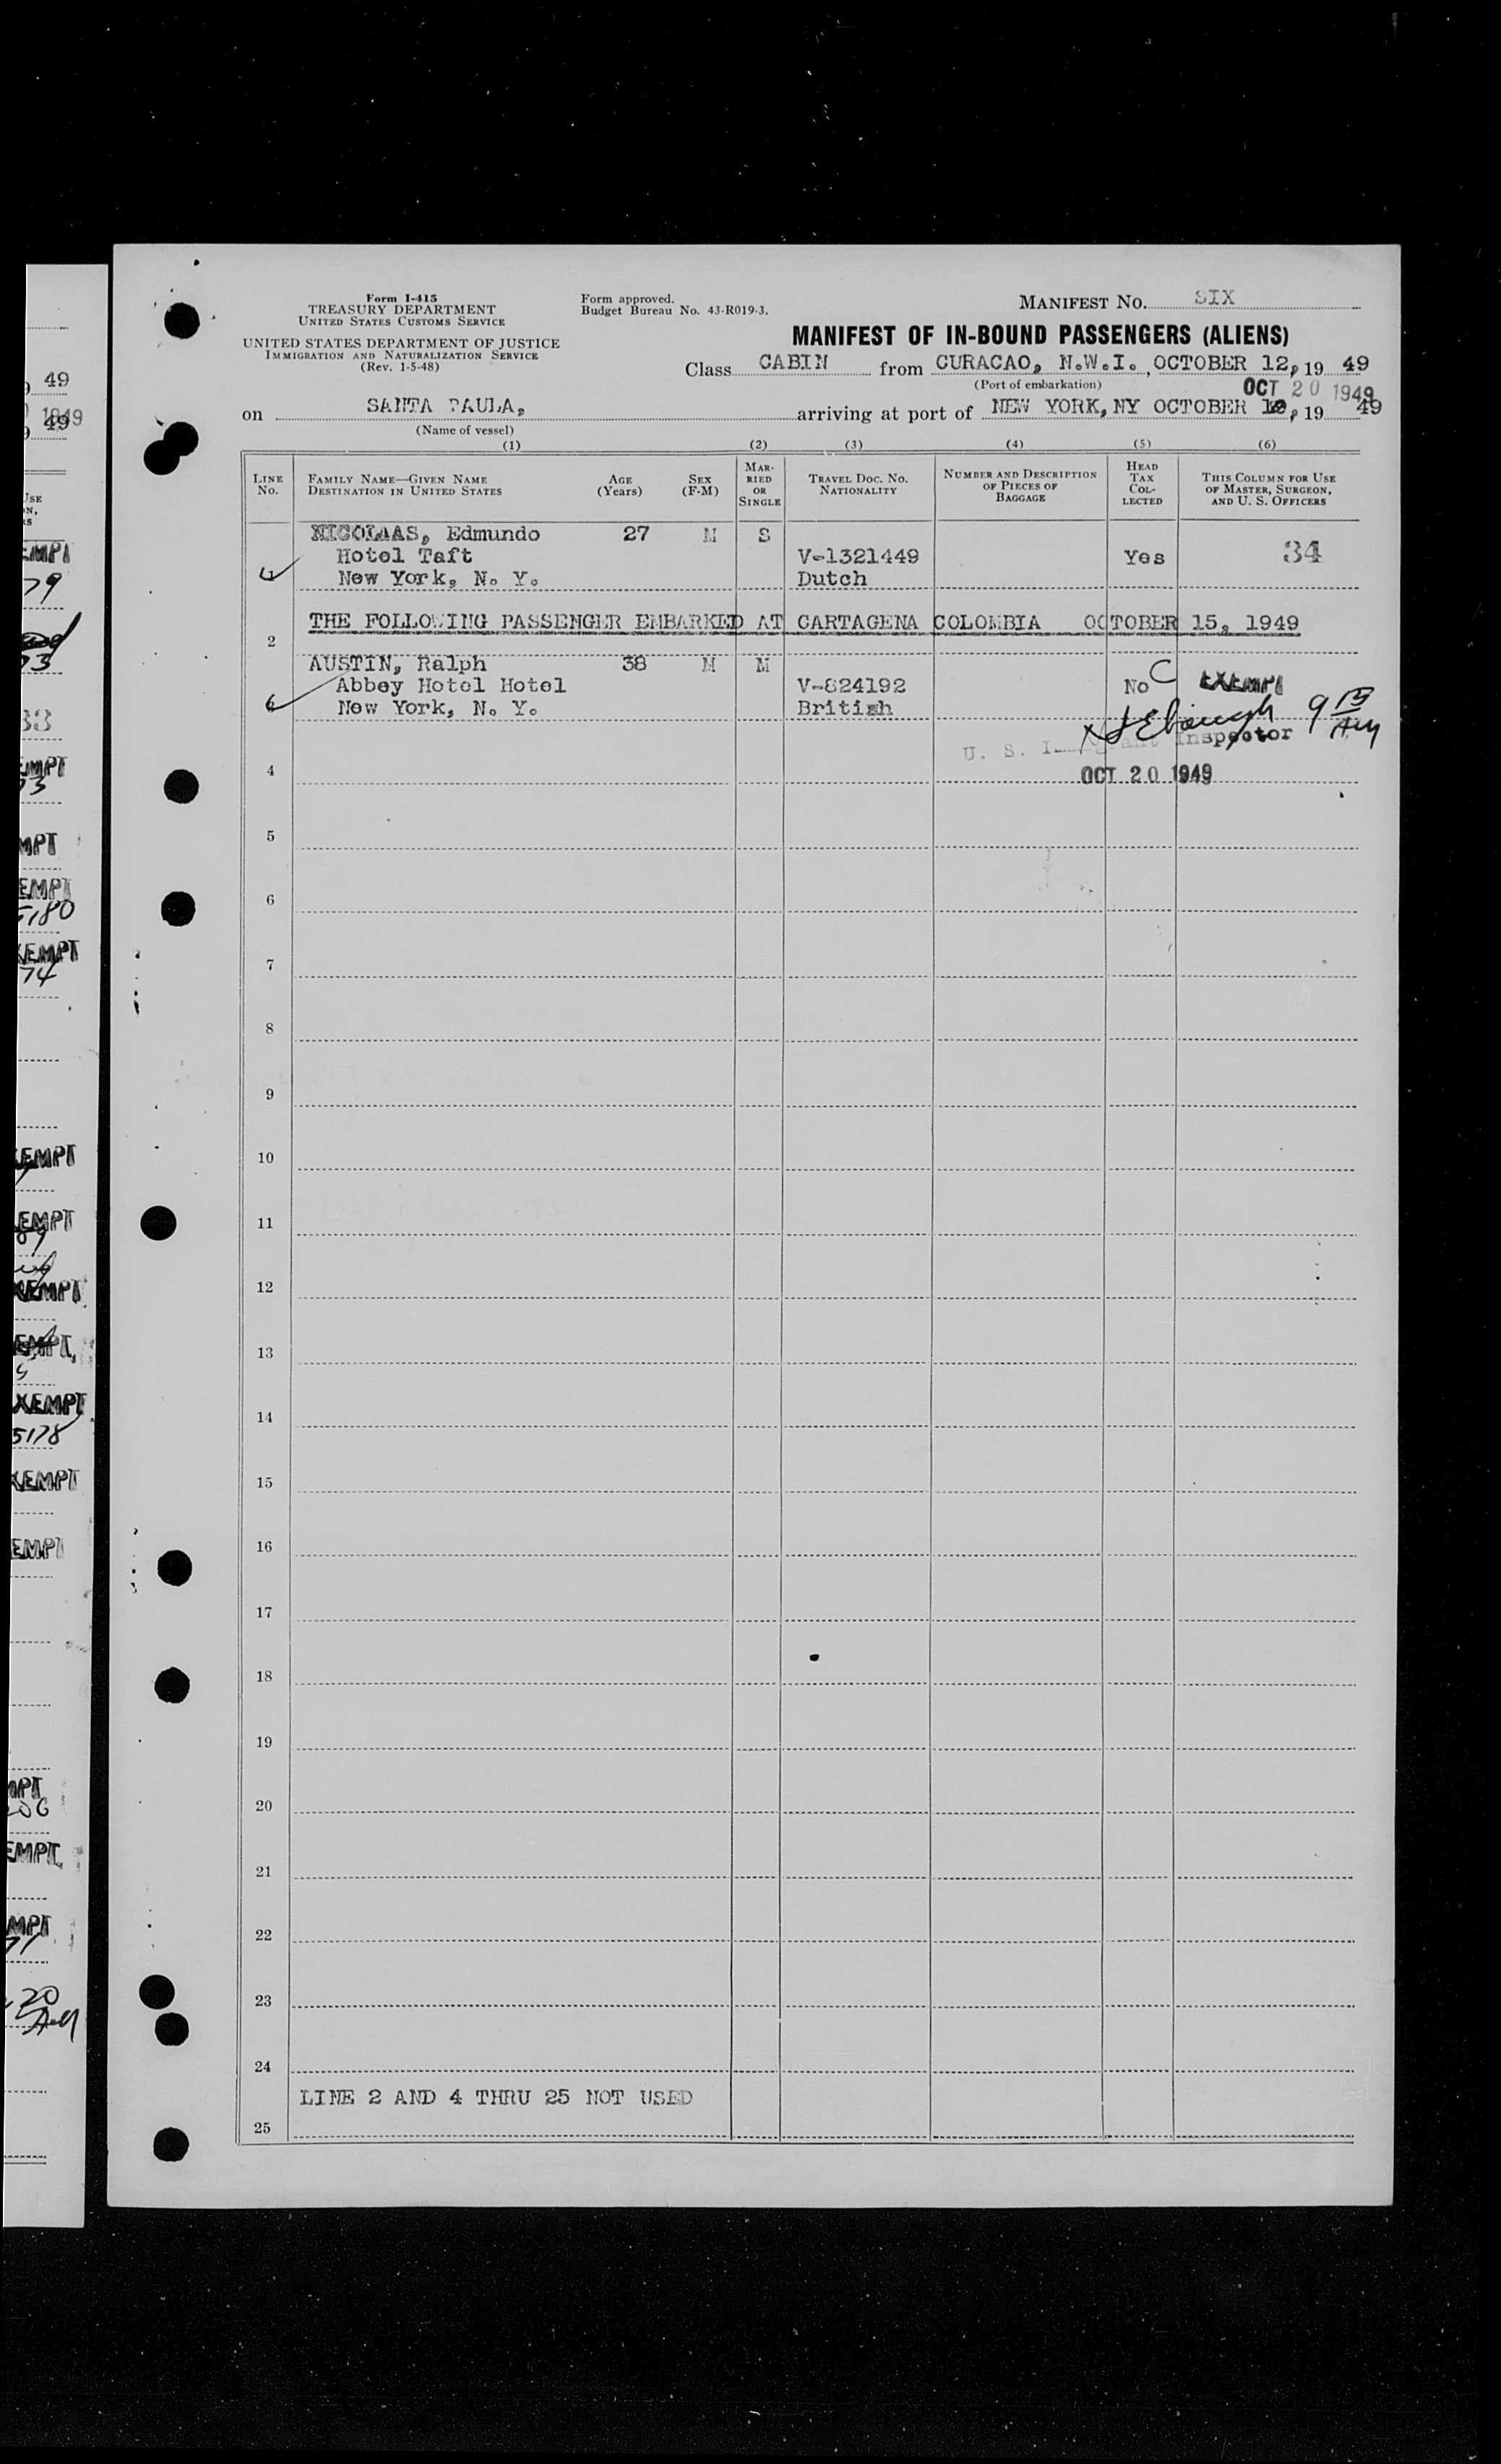 Form I-415
TREASURY DEPARTMENT
UNITED STATES CUSTOMS SERVICE
UNITED STATES DEPARTMENT OF JUSTICE
IMMIGRATION AND NATURALIZATION SERVICE
(Rev. 1-5-48)
Form approved.
Budget Bureau No. 43-R019-3.
MANIFEST NO. SIX
MANIFEST OF IN-BOUND PASSENGERS (ALIENS)
Class CABIN from CURACAO, N.W.I., OCTOBER 12, 19 49
(Port of embarkation)
OCT 20 1949
on SANTA PAULA, arriving at port of NEW YORK, NY OCTOBER , 19 49
(Name of vessel)
(1) (2) (3) (4) (5) (6)
LINE NO.
FAMILY NAME—GIVEN NAME
DESTINATION IN UNITED STATES
AGE (Years)
SEX (F-M)
MARRIED OR SINGLE
TRAVEL DOC. NO.
NATIONALITY
NUMBER AND DESCRIPTION OF PIECES OF BAGGAGE
HEAD TAX COLLECTED
THIS COLUMN FOR USE OF MASTER, SURGEON, AND U. S. OFFICERS
NICOLAAS, Edmundo 27 M S
Hotel Taft V-1321449 Yes 34
New York, N. Y. Dutch
THE FOLLOWING PASSENGER EMBARKED AT CARTAGENA COLOMBIA OCTOBER 15, 1949
2
AUSTIN, Ralph 38 M M
Abbey Hotel Hotel V-824192 No C EXEMPT
New York, N. Y. British
9 15 AM
U. S. Inspector
4 OCT 20 1949
5
6
7
8
9
10
11
12
13
14
15
16
17
18
19
20
21
22
23
24
LINE 2 AND 4 THRU 25 NOT USED
25